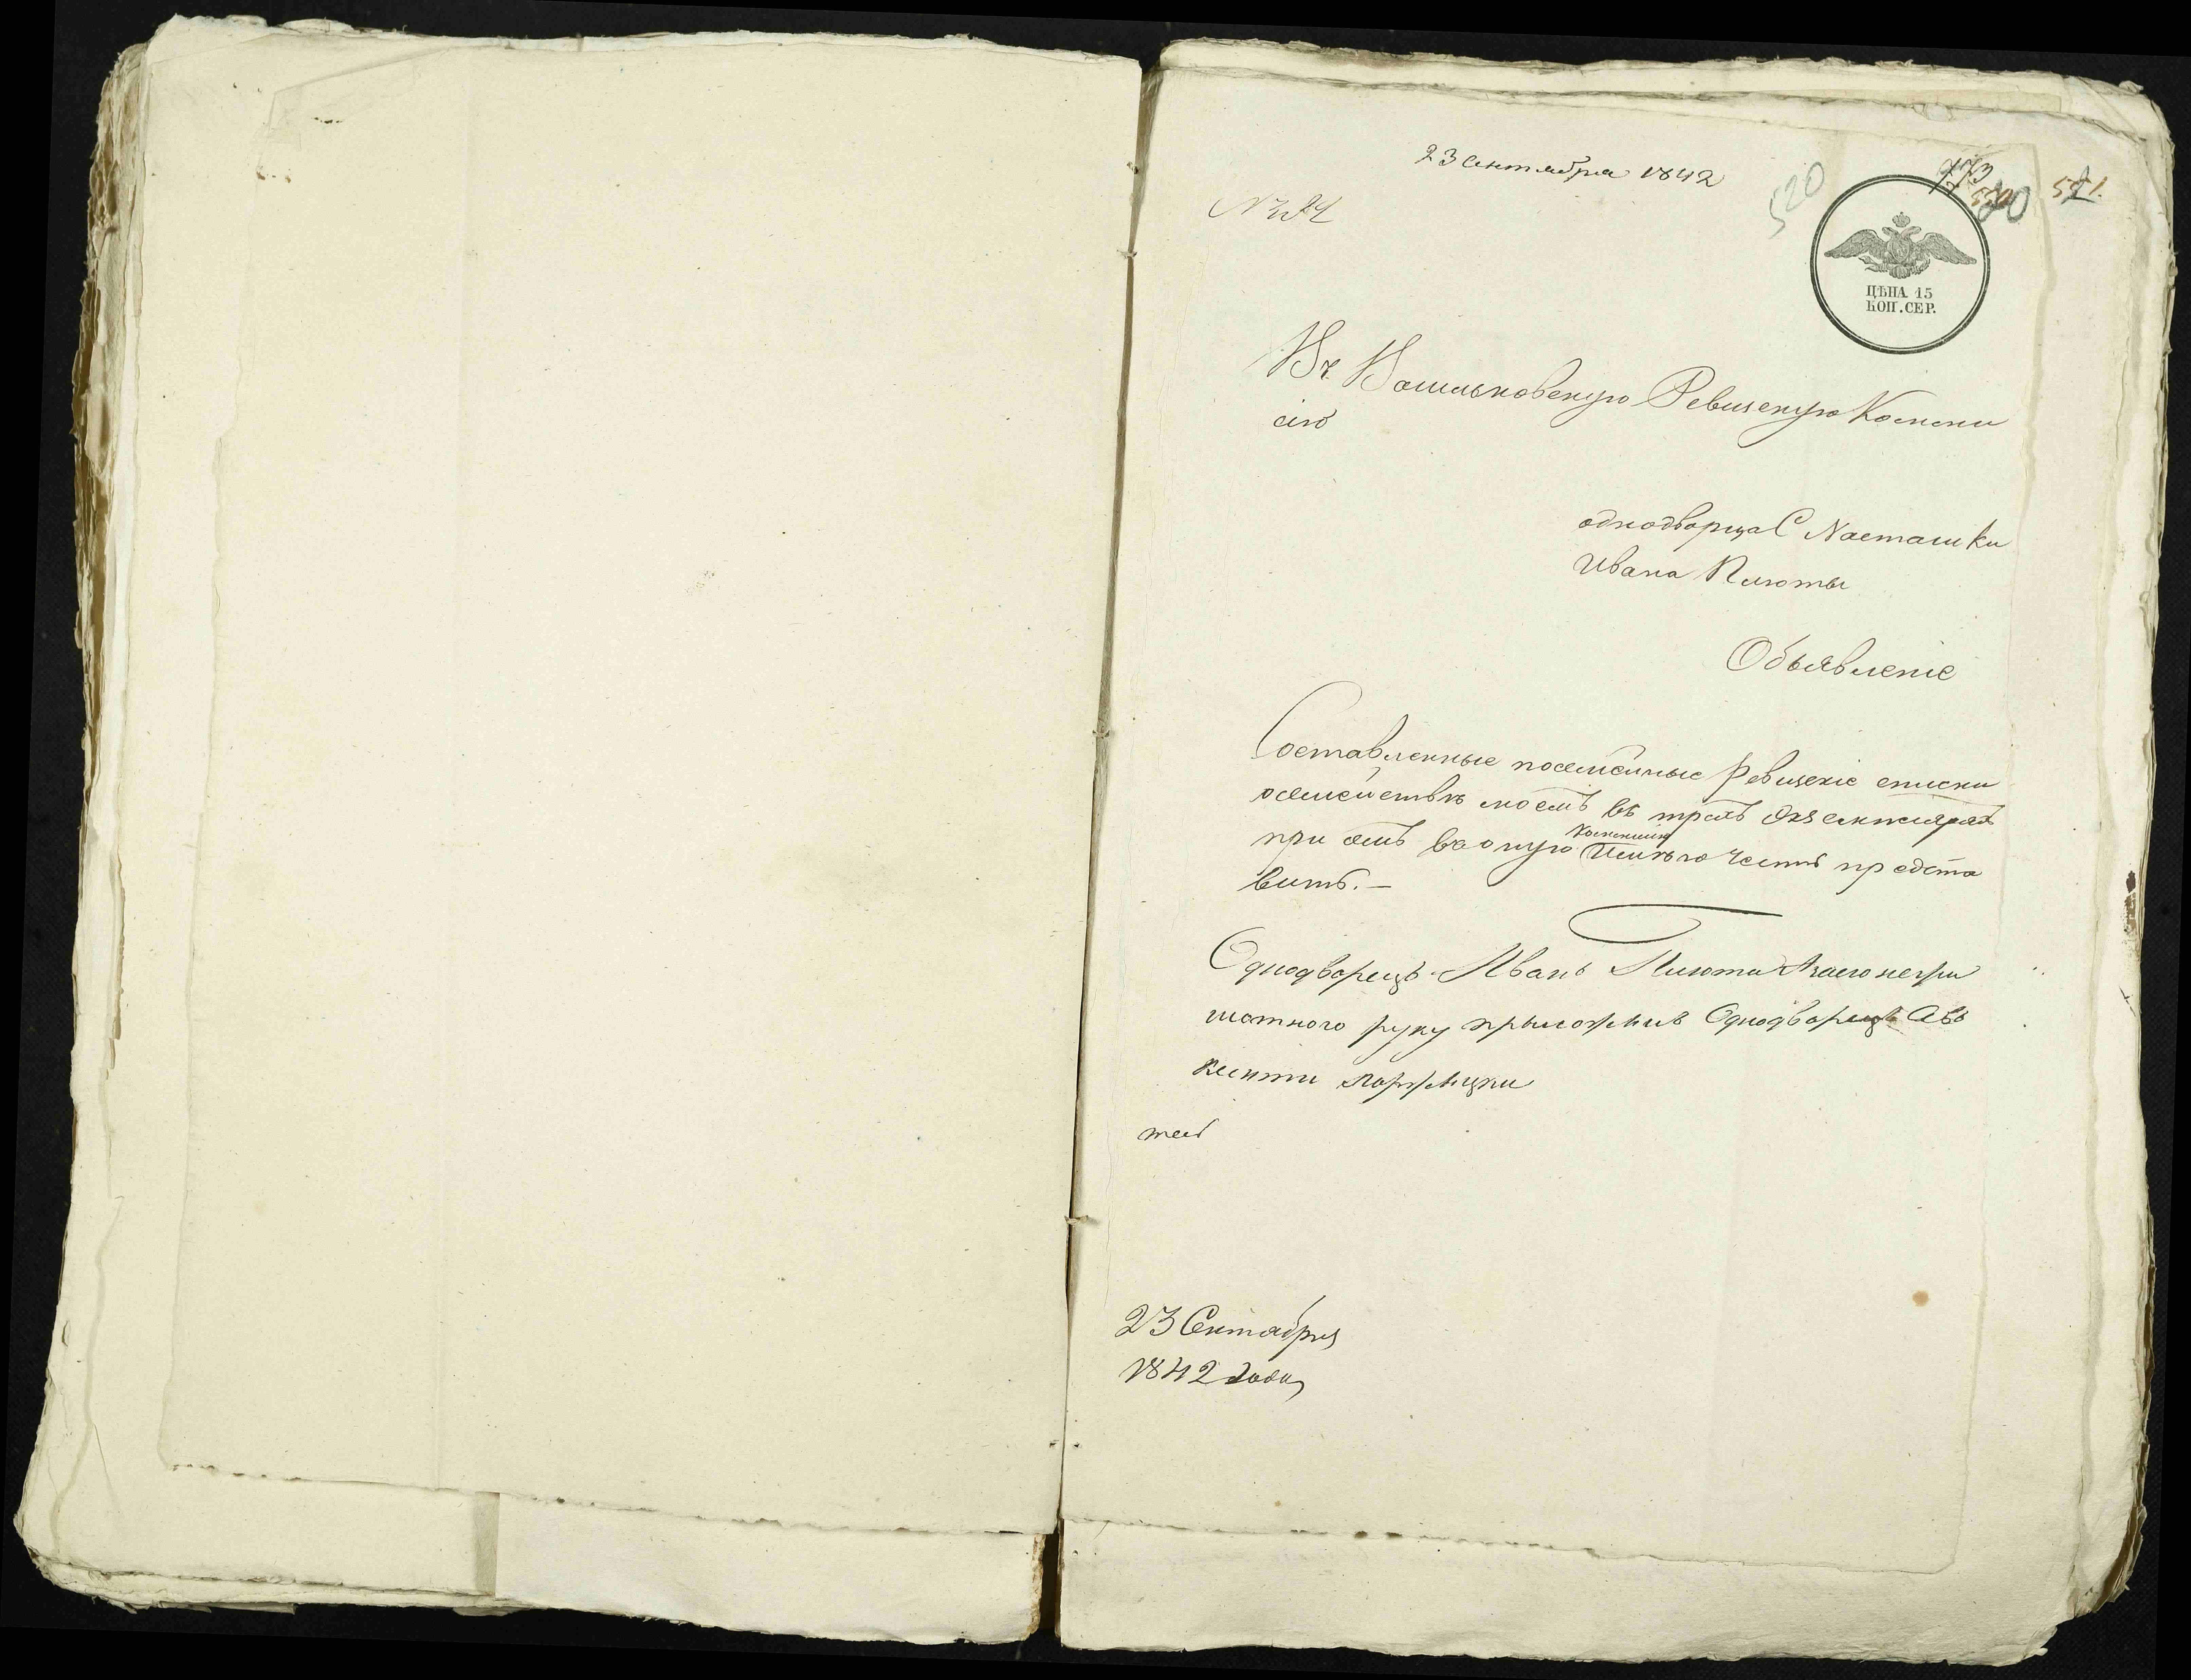 23 Сентября 1842
520
773
520
521.
№
ЦѢНА 15
КОП. СЕР.
Въ Васильковскую Ревизскую Комми
сію
однодворца С Насташки
Ивана Плюты
Объявленіе
Составленные посемейные Ревизскіе списки
осемействѣ моемъ въ трехъ Экземплярахъ
при семъ въ оную Коммисію Имѣю честь предста
вить.—
Однодворецъ Иванъ Плюта Азаего негра
мотного руку приложилъ Однодворецъ Ав
кенти
23 Сентября
1842 Года